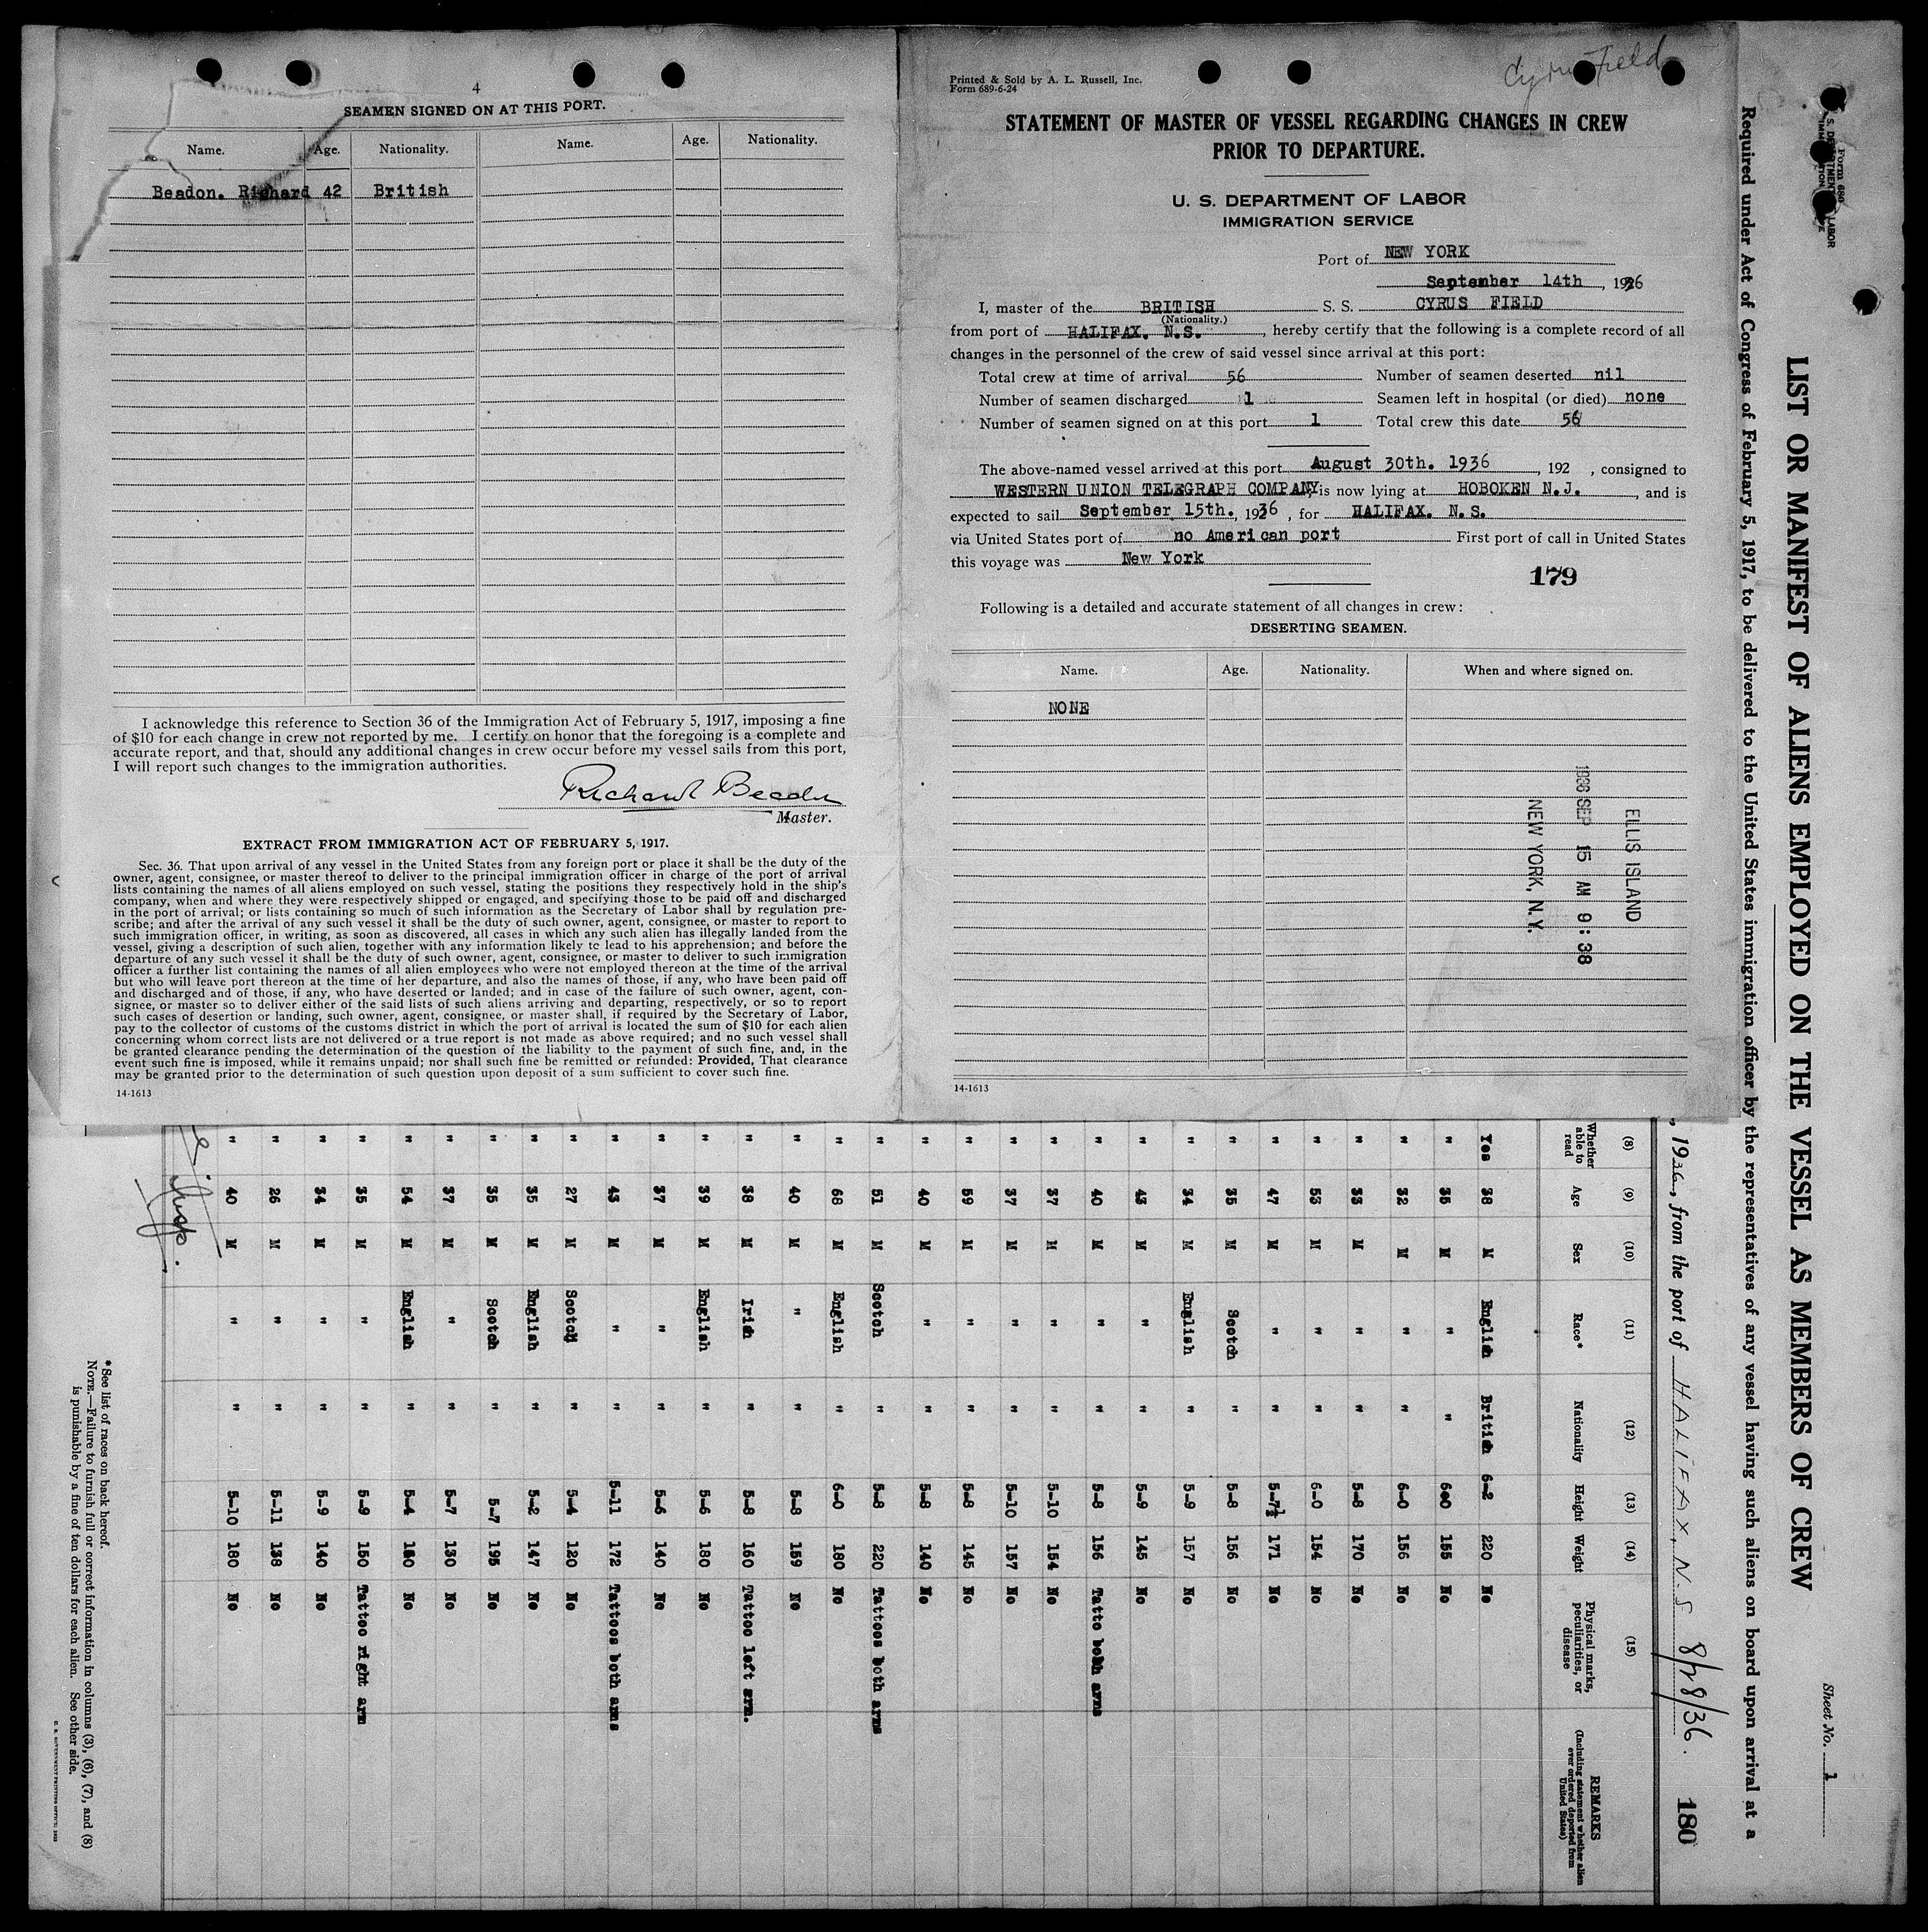 4
SEAMEN SIGNED ON AT THIS PORT.
Name. Age. Nationality. Name. Age. Nationality.
Beadon. Richard 42 British
I acknowledge this reference to Section 36 of the Immigration Act of February 5, 1917, imposing a fine
of $10 for each change in crew not reported by me. I certify on honor that the foregoing is a complete and
accurate report, and that, should any additional changes in crew occur before my vessel sails from this port,
I will report such changes to the immigration authorities.
Richard Beadon
Master.
EXTRACT FROM IMMIGRATION ACT OF FEBRUARY 5, 1917.
Sec. 36. That upon arrival of any vessel in the United States from any foreign port or place it shall be the duty of the
owner, agent, consignee, or master thereof to deliver to the principal immigration officer in charge of the port of arrival
lists containing the names of all aliens employed on such vessel, stating the positions they respectively hold in the ship's
company, when and where they were respectively shipped or engaged, and specifying those to be paid off and discharged
in the port of arrival; or lists containing so much of such information as the Secretary of Labor shall by regulation pre-
scribe; and after the arrival of any such vessel it shall be the duty of such owner, agent, consignee, or master to report to
such immigration officer, in writing, as soon as discovered, all cases in which any such alien has illegally landed from the
vessel, giving a description of such alien, together with any information likely to lead to his apprehension; and before the
departure of any such vessel it shall be the duty of such owner, agent, consignee, or master to deliver to such immigration
officer a further list containing the names of all alien employees who were not employed thereon at the time of the arrival
but who will leave port thereon at the time of her departure, and also the names of those, if any, who have been paid off
and discharged and of those, if any, who have deserted or landed; and in case of the failure of such owner, agent, con-
signee, or master so to deliver either of the said lists of such aliens arriving and departing, respectively, or so to report
such cases of desertion or landing, such owner, agent, consignee, or master shall, if required by the Secretary of Labor,
pay to the collector of customs of the customs district in which the port of arrival is located the sum of $10 for each alien
concerning whom correct lists are not delivered or a true report is not made as above required; and no such vessel shall
be granted clearance pending the determination of the question of the liability to the payment of such fine, and, in the
event such fine is imposed, while it remains unpaid; nor shall such fine be remitted or refunded: Provided, That clearance
may be granted prior to the determination of such question upon deposit of a sum sufficient to cover such fine.
14-1613
Cyrus Field
Printed & Sold by A. L. Russell, Inc.
Form 689-6-24
STATEMENT OF MASTER OF VESSEL REGARDING CHANGES IN CREW
PRIOR TO DEPARTURE.
U. S. DEPARTMENT OF LABOR
IMMIGRATION SERVICE
Port of NEW YORK
September 14th, 1936
I, master of the BRITISH S. S. CYRUS FIELD
(Nationality.)
from port of HALIFAX. N.S., hereby certify that the following is a complete record of all
changes in the personnel of the crew of said vessel since arrival at this port:
Total crew at time of arrival 56 Number of seamen deserted nil
Number of seamen discharged 1 Seamen left in hospital (or died) none
Number of seamen signed on at this port 1 Total crew this date 56
The above-named vessel arrived at this port August 30th. 1936, 192 , consigned to
WESTERN UNION TELEGRAPH COMPANY, is now lying at HOBOKEN N.J., and is
expected to sail September 15th., 1936, for HALIFAX. N.S.
via United States port of no American port First port of call in United States
this voyage was New York
179
Following is a detailed and accurate statement of all changes in crew:
DESERTING SEAMEN.
Name. Age. Nationality. When and where signed on.
NONE
ELLIS ISLAND
1936 SEP 15 AM 9:38
NEW YORK, N.Y.
14-1613
Form 680
U. S. DEPARTMENT OF LABOR
Sheet No. 1
LIST OR MANIFEST OF ALIENS EMPLOYED ON THE VESSEL AS MEMBERS OF CREW
Required under Act of Congress of February 5, 1917, to be delivered to the United States immigration officer by the representatives of any vessel having such aliens on board upon arrival at a
, 1936, from the port of HALIFAX, N.S 8/28/36.
180
(8) (9) (10) (11) (12) (13) (14) (15)
Whether able to read Age Sex Race* Nationality Height Weight Physical marks, peculiarities, or disease REMARKS (Including statement whether alien ever ordered deported from United States)
Yes 38 M English British 6-2 220 No
" 35 M " " 6-0 155 No
" 32 M " " 6-0 156 No
" 33 M " " 5-8 170 No
" 53 M " " 6-0 154 No
" 47 M " " 5-7½ 171 No
" 35 M Scotch " 5-8 156 No
" 34 M English " 5-9 157 No
" 43 M " " 5-9 145 No
" 40 M " " 5-8 156 Tatto both arms
" 37 M " " 5-10 154 No
" 37 M " " 5-10 157 No
" 59 M " " 5-8 145 No
" 40 M " " 5-8 140 No
" 51 M Scotch " 5-8 220 Tattoos both arms
" 68 M English " 6-0 180 No
" 40 M " " 5-8 159 No
" 38 M Irish " 5-8 160 Tattoo left arm.
" 39 M English " 5-6 180 No
" 37 M " " 5-6 140 No
" 43 M " " 5-11 172 Tattoos both arms
" 27 M Scotch " 5-4 120 No
" 35 M English " 5-2 147 No
" 35 M Scotch " 5-7 195 No
" 37 M " " 5-7 130 No
" 54 M English " 5-4 No
" 35 M " " 5-9 150 Tattoo right arm
" 34 M " " 5-9 140 No
" 26 M " " 5-11 138 No
" 40 M " " 5-10 180 No
Insp.
*See list of races on back hereof.
NOTE.—Failure to furnish full or correct information in columns (3), (6), (7), and (8)
is punishable by a fine of ten dollars for each alien. See other side.